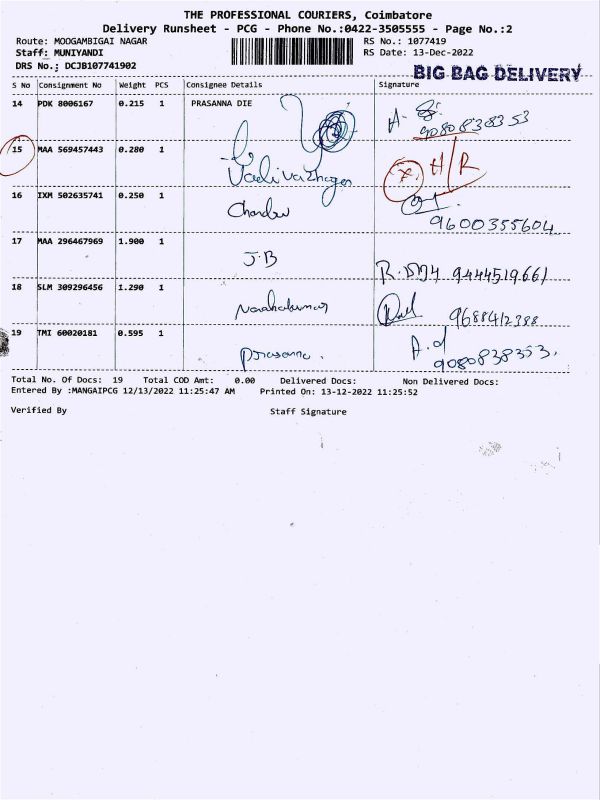 THE PROFESSIONAL COURIERS, Coimbatore
Delivery Runsheet - PCG - Phone No.:0422-3505555 - Page No.:2
Route: MOOGAMBIGAI NAGAR RS No.: 1077419
Staff: MUNIYANDI RS Date: 13-Dec-2022
DRS No.: DCJB107741902
BIG BAG DELIVERY
S No Consignment No Weight PCS Consignee Details Signature
14 PDK 8006167 0.215 1 PRASANNA DIE
9080838353
15 MAA 569457443 0.280 1 H/R
16 IXM 502635741 0.250 1
9600355604
17 MAA 296467969 1.900 1 J.B 9444519661
18 SLM 309296456 1.290 1 9688412388
19 TMI 60020181 0.595 1 Prasanna. 9080838353.
Total No. Of Docs: 19 Total COD Amt: 0.00 Delivered Docs: Non Delivered Docs:
Entered By :MANGAIPCG 12/13/2022 11:25:47 AM Printed On: 13-12-2022 11:25:52
Verified By Staff Signature